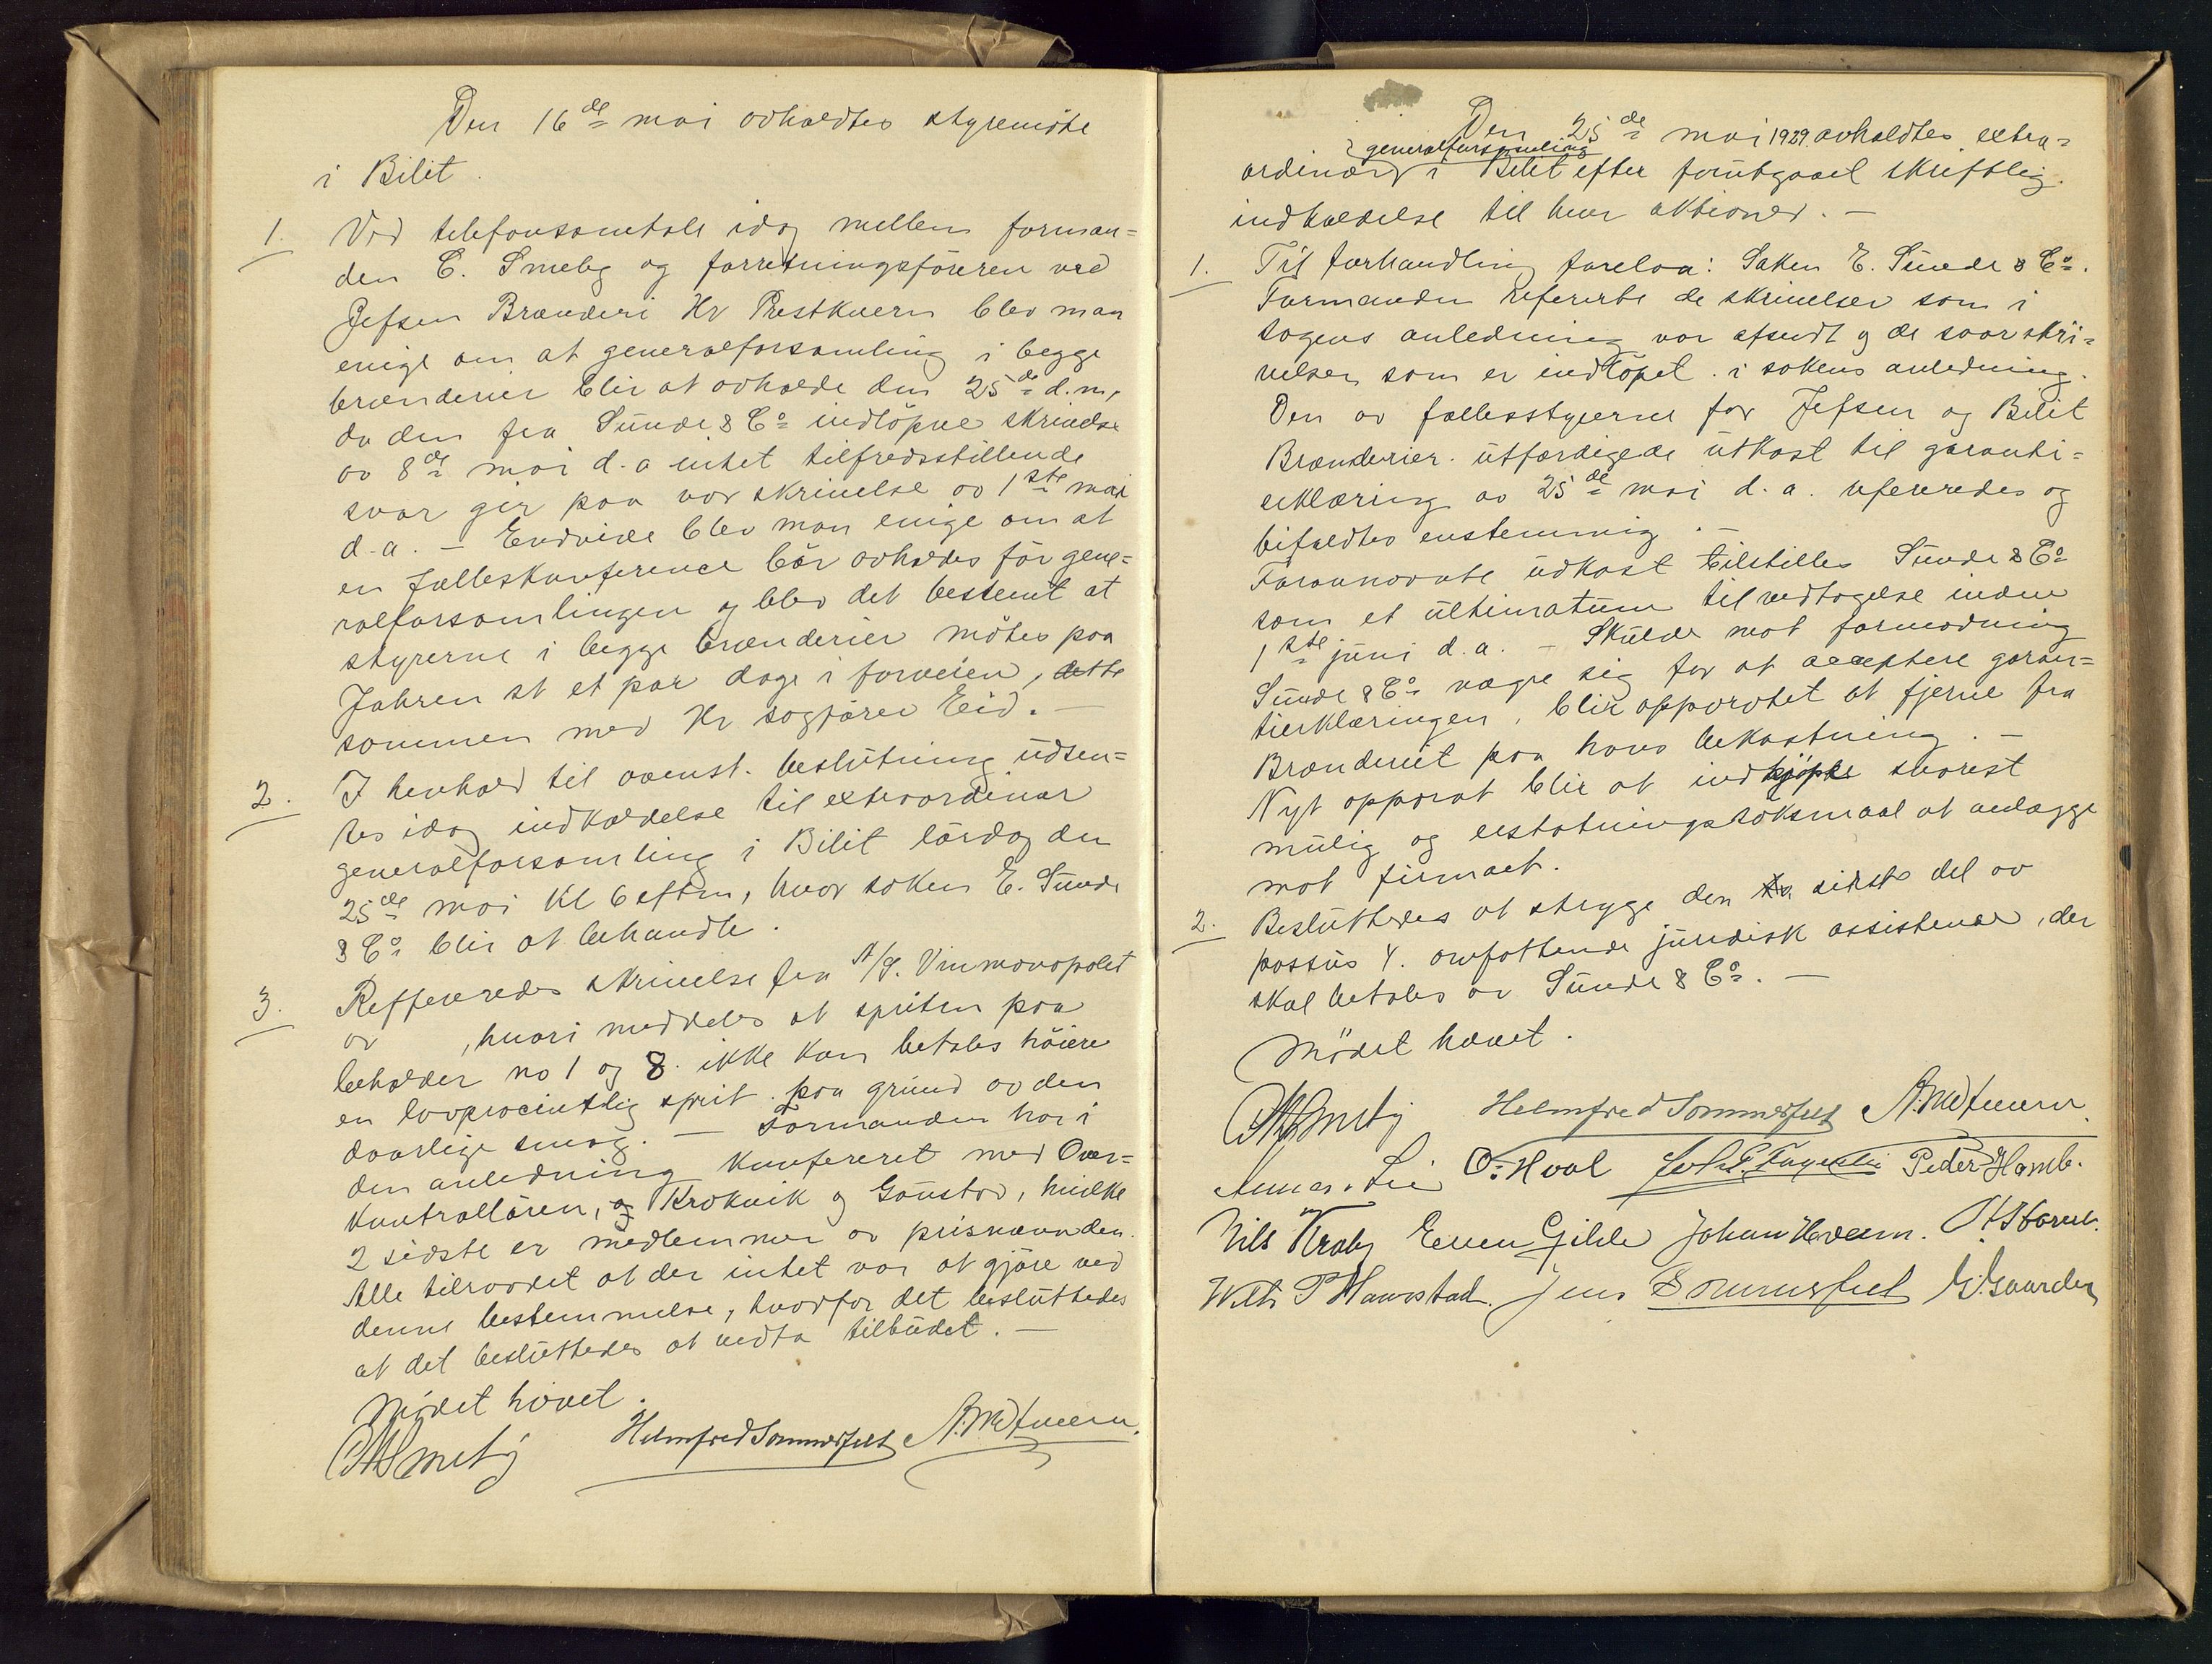 Den 16de mai avholdtes styremöte
i Bilit.
1. Ved telefonsamtale idag mellem forman=
den C. Smeby og forretningsföreren ved
Jefsen Brænderi Hr Prestkvern blev man
enige om at generalforsamling i begge
brænderier blir at avholde den 25de d.m,
da den fra Sunde & Co indlöpne skrivelse
av 8de mai d.a intet tilfredsstillende
svar gir paa vor skrivelse av 1ste mai
d.a. – Endvidre blev man enige om at
en felleskonference bör avholdes för gene=
ralforsamlingen og blev det bestemt at
styrerne i begge brænderier mötes paa
Jahren st et par dage i forveien, dette
sammen med Hr sagförer Eid. –
2. I henhold til ovenst. beslutning udsen=
tes idag indkaldelse til extraordinær
generalforsamling i Bilit lördag den
25de mai Kl 6 eftm, hvor saken E. Sunde
& Co blir at behandle.
3. Reffereredes skrivelse fra A/S. Vinmonopolet
av , hvori meddeles at spriten paa
beholder no 1 og 8. ikke kan betales höiere
en lavprocintlig sprit. paa grund av den
daarlige smag. – Formanden har i
den anledning konfereret med Over=
kontrollören, og Krokvik og Gaustad, hvilke
2 sidste er medlemmer av prisnævnden.
Alle tilraadet at der intet var at gjöre ved
denne bestemmelse, hvorfor det besluttedes
at det besluttedes at vedta tilbudet. –
Mödet hævet.
Smeby Helmfred Sommerfelt
Den 25de mai 1929 avholdtes extra=
generalforsamling
ordinær i Bilit efter forutgaael skriftlig
indkaldelse til hver aktionær. –
1. Til forhandling forelaa: Saken E. Sunde & Co.
Formanden refererte de skrivelser som i
sagens anledning var afsendt og de svarskri=
velser som er indlöpet. i sakens anledning.
Den av fællesstyrerne for Jefsen og Bilit
Brænderier. utfærdigede utkast til garanti=
erklæring av 25de mai d.a. refereredes og
bifaldtes enstemmig. –
Forannævnte udkast tilstilles Sunde & Co
som et ultimatum til vedtagelse inden
1ste juni d.a. – Skulde mot formodning
Sunde & Co vægre sig for at acceptere garan=
tierklæringen, blir apparatet at fjerne fra
Brænderiet paa hans bekostning. –
Nyt apparat blir at indkjöpke snarest
mulig og erstatningssöksmaal at anlægge
mot firmaet.
2. Besluttedes at stryge den sidste del av
passus 4. omfattende juridisk assistense, der
skal betales av Sunde & Co. –
Mödet hævet.
Smeby Helmfred Sommerfelt
Lie O. Hval Peder Hamb.
Nils Kraby Even Gihle Johan
P Haugstad. Jens Sommerfelt Gaarder